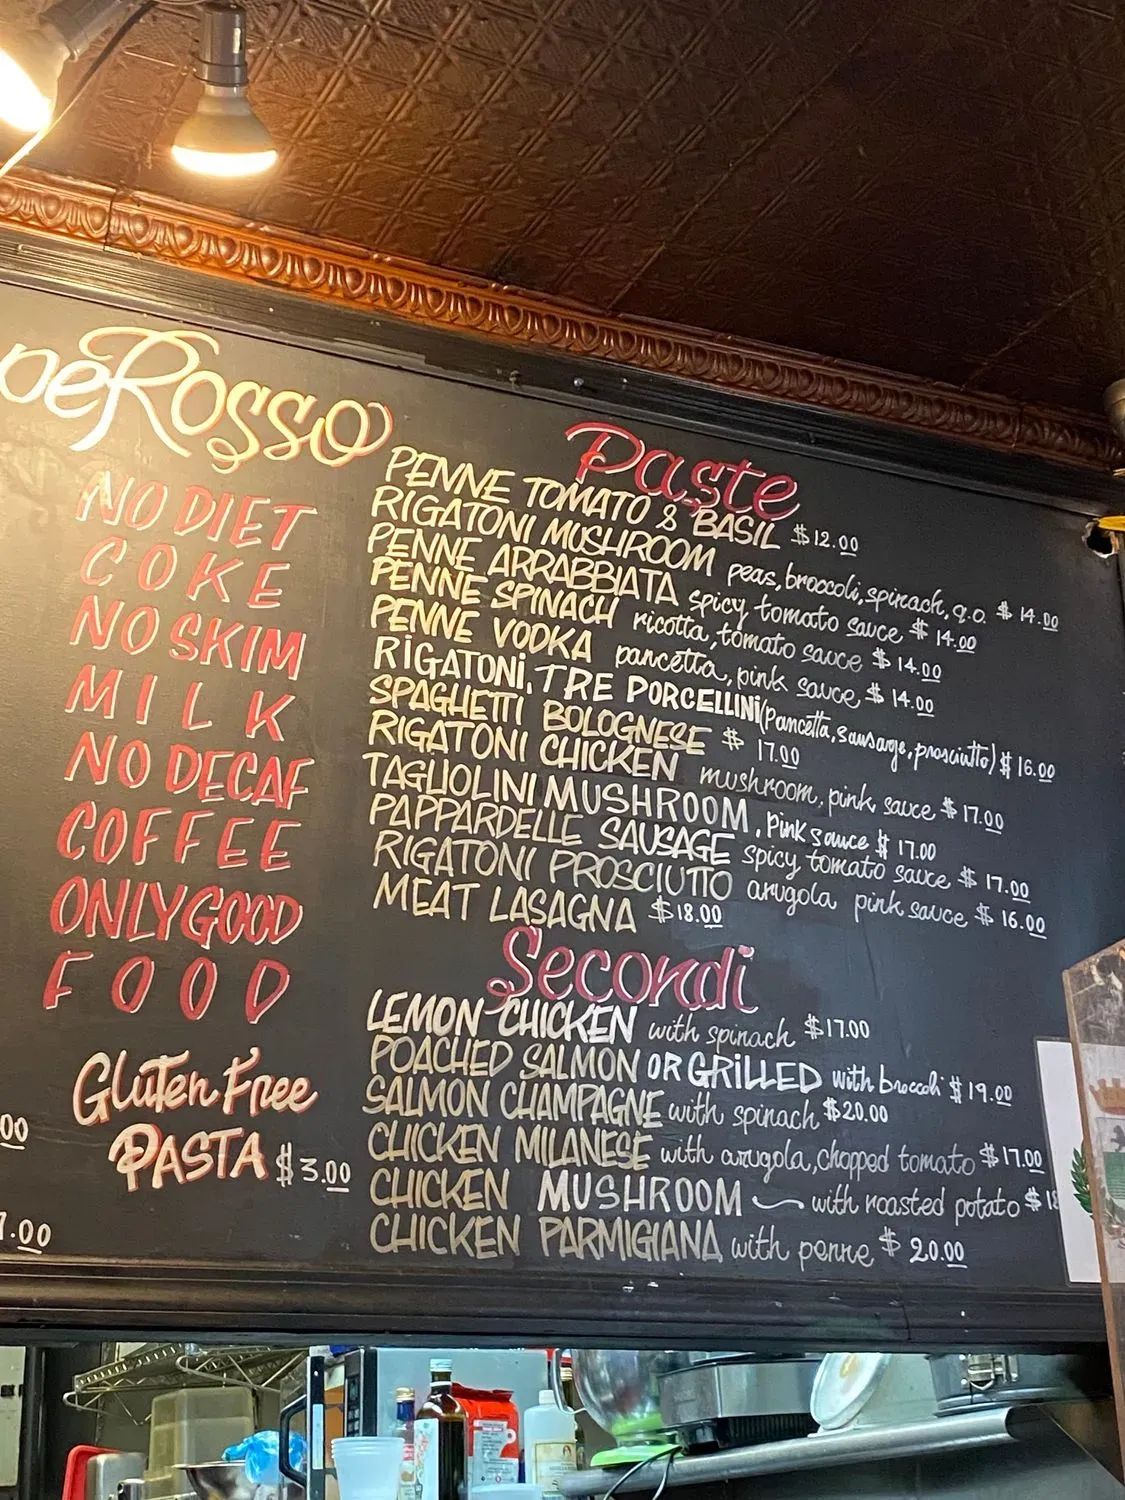 PepeRosso
NO DIET
COKE
NO SKIM
MILK
NO DECAF
COFFEE
ONLY GOOD
FOOD
Gluten Free
PASTA $3.00
Paste
PENNE TOMATO & BASIL $12.00
RIGATONI MUSHROOM peas, broccoli, spinach, g.o. $14.00
PENNE ARRABBIATA spicy tomato sauce $14.00
PENNE SPINACH ricotta, tomato sauce $14.00
PENNE VODKA pancetta, pink sauce $14.00
RIGATONI. TRE PORCELLINI (pancetta, sausage, prosciutto) $16.00
SPAGHETTI BOLOGNESE $17.00
RIGATONI CHICKEN mushroom, pink sauce $17.00
TAGLIOLINI MUSHROOM, Pink sauce $17.00
PAPPARDELLE SAUSAGE spicy tomato sauce $17.00
RIGATONI PROSCIUTTO arugola pink sauce $16.00
MEAT LASAGNA $18.00
Secondi
LEMON CHICKEN with spinach $17.00
POACHED SALMON OR GRILLED with broccoli $19.00
SALMON CHAMPAGNE with spinach $20.00
CHICKEN MILANESE with arugola, chopped tomato $17.00
CHICKEN MUSHROOM with roasted potato $18
CHICKEN PARMIGIANA with penne $20.00